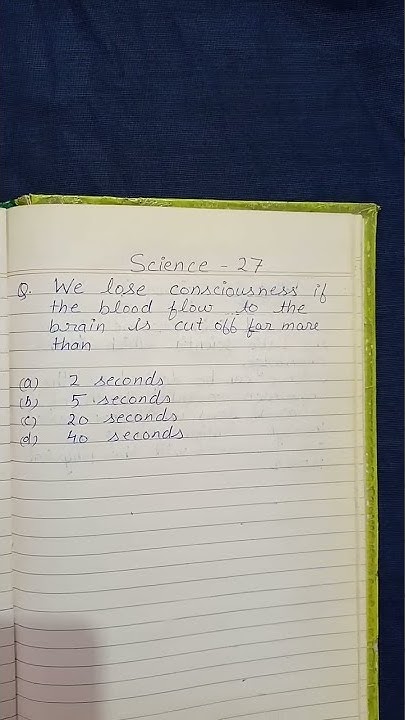 Science - 27
Q. We lose consciousness if
the blood flow to the
brain is cut off for more
than
(a) 2 seconds
(b) 5 seconds
(c) 20 seconds
(d) 40 seconds